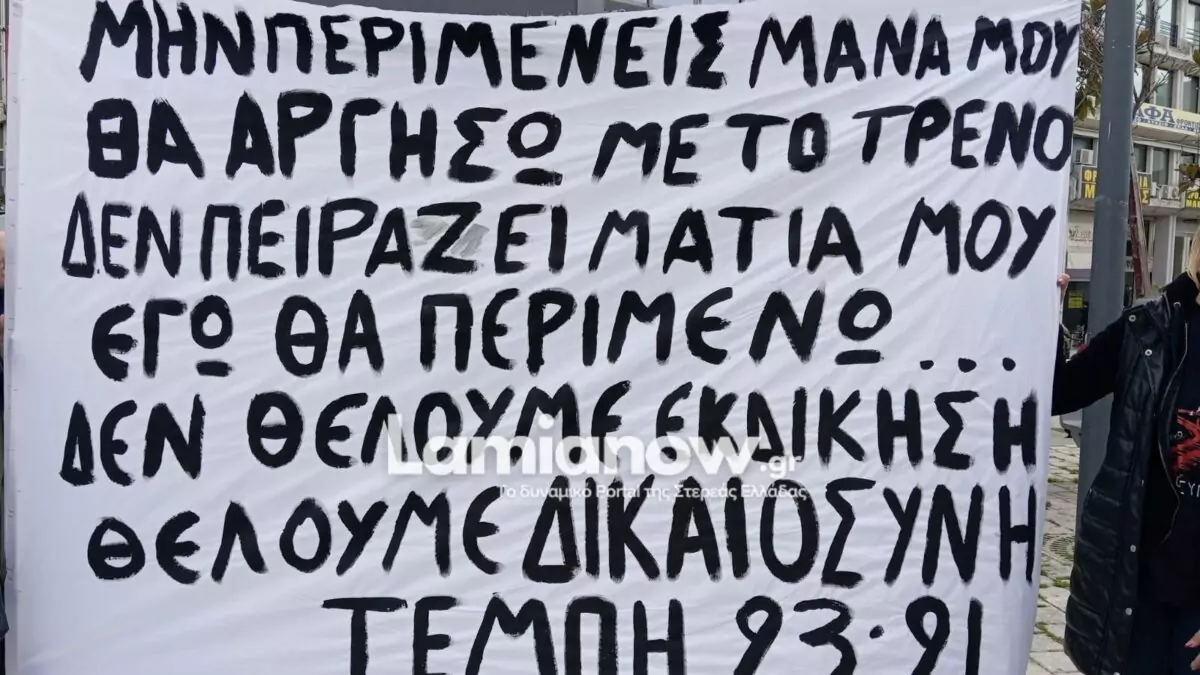 ΜΗΝ ΠΕΡΙΜΕΝΕΙΣ ΜΑΝΑ ΜΟΥ
ΘΑ ΑΡΓΗΣΩ ΜΕ ΤΟ ΤΡΕΝΟ
ΔΕΝ ΠΕΙΡΑΖΕΙ ΜΑΤΙΑ ΜΟΥ
ΕΓΩ ΘΑ ΠΕΡΙΜΕΝΩ...
ΔΕΝ ΘΕΛΟΥΜΕ ΕΚΔΙΚΗΣΗ
Lamianow.gr
Το δυναμικό Portal της Στερεάς Ελλάδας
ΘΕΛΟΥΜΕ ΔΙΚΑΙΟΣΥΝΗ
ΤΕΜΠΗ